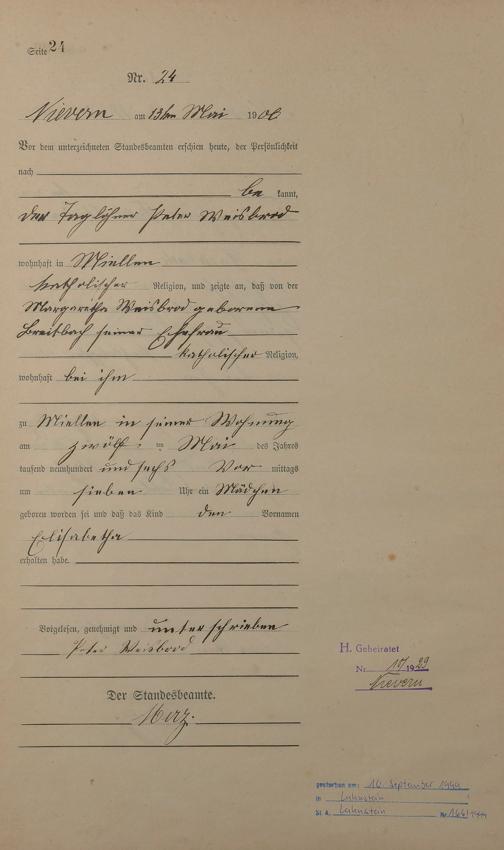 Seite 24
Nr. 24
Nievern am 13ten Mai 1906
Vor dem unterzeichneten Standesbeamten erschien heute, der Persönlichkeit
nach
be kannt,
der Taglöhner Peter Weisbrod
wohnhaft in Miellen
katholischer Religion, und zeigte an, daß von der
Margaretha Weisbrod geborene
Breitbach seiner Ehefrau
katholischer Religion,
wohnhaft bei ihm
zu Miellen in seiner Wohnung
am zwölf ten Mai des Jahres
tausend neunhundert und sechs Vor mittags
um sieben Uhr ein Mädchen
geboren worden sei und daß das Kind den Vornamen
Elisabetha
erhalten habe.
Vorgelesen, genehmigt und unterschrieben
Peter Weisbrod
Der Standesbeamte.
Merz.
H. Geheiratet
Nr. 1929
Nievern
gestorben am: 16. September 1999
in Lahnstein
St. A. Lahnstein Nr. 166/1999